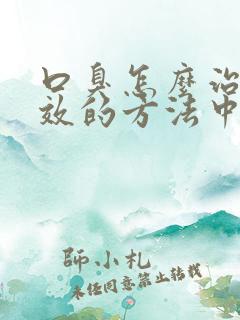 口臭怎麼治
效的方法中
師小札
未經同意禁止轉載